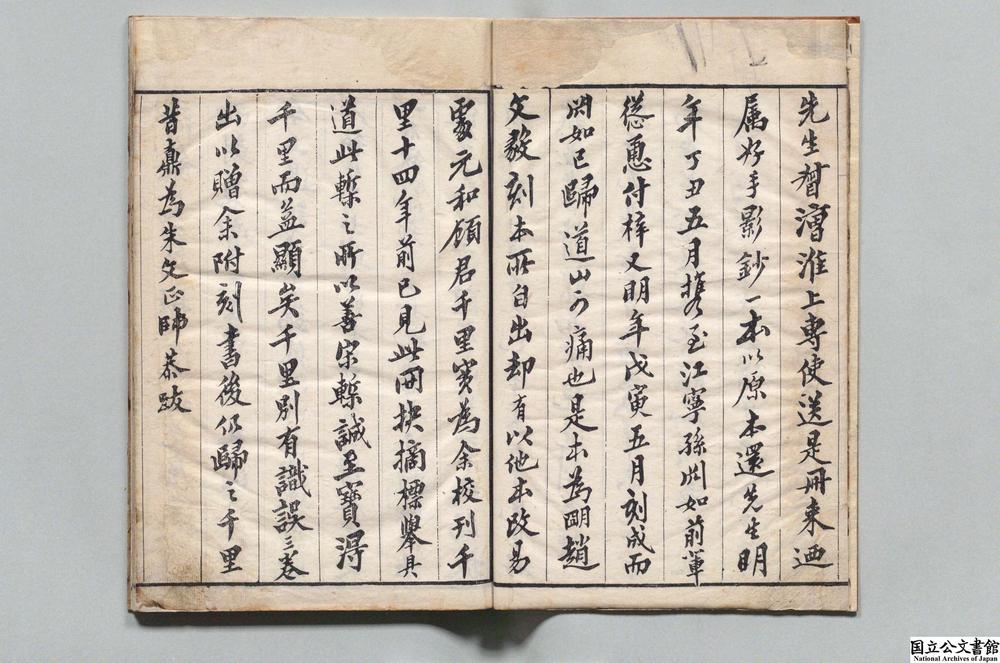 先生督漕淮上專使送是冊来迺
属好手影鈔一本以原本還先生明
年丁丑五月攜至江寧孫淵如前軰
慫恿付梓又明年戊寅五月刻成而
淵如已歸道山可痛也是本為明趙
文毅刻本所自出却有以他本改易
處元和顧君千里實為余校刊千
里十四年前已見此冊抉摘標舉具
道此槧之所以善宋槧誠至寶得
千里而益顯矣千里別有識誤三卷
出以贈余附刻書後仍歸之千里
昔鼒為朱文正師恭跋
国立公文書館
National Archives of Japan